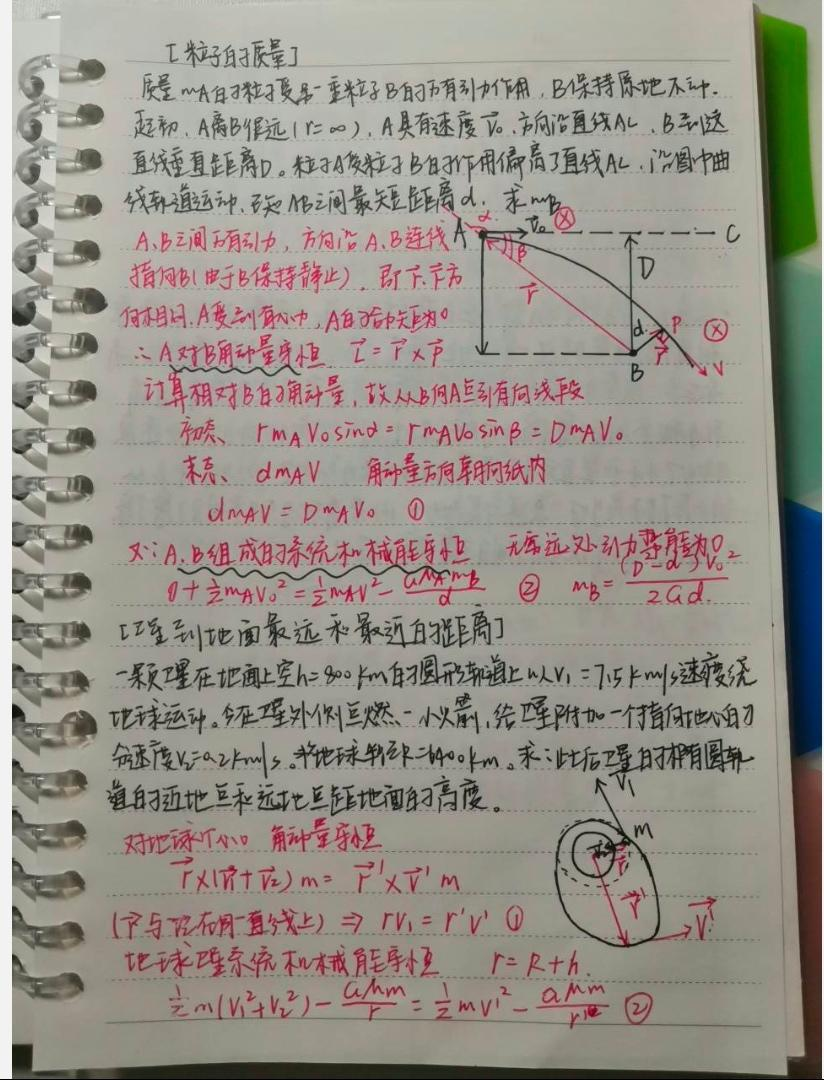 [粒子的质量]
质量mA的粒子受另一重粒子B的万有引力作用,B保持原地不动.
起初,A离B很远(r=∞),A具有速度v⃗₀,方向沿直线AC,B到这
直线垂直距离D。粒子A受粒子B的作用偏离了直线AC,沿图中曲
线轨道运动,已知AB之间最短距离d.求mB
A α v⃗₀ ⊗ C
β D r⃗
d P r⃗ ⊗
B V
A、B之间万有引力,方向沿A、B连线
指向B(由于B保持静止),即F⃗、r⃗方
向相同,A受到有心力,A的力矩为0
∴A对B角动量守恒 L⃗=r⃗×p⃗
计算相对B的角动量,故从B向A点引有向线段
初态、rmAV₀sinα=rmAV₀sinβ=DmAV₀
末态、dmAV 角动量方向朝向纸内
dmAV=DmAV₀ ①
又∵A、B组成的系统机械能守恒 无穷远处引力势能为0
0+½mAV₀²=½mAV²-GMAmB/d ② mB=(D²-d²)V₀²/2Gd.
[卫星到地面最远和最近的距离]
一颗卫星在地面上空h=800km的圆形轨道上以V₁=7.5km/s速度绕
地球运动。今在卫星外侧点燃一小火箭,给卫星附加一个指向地心的分
速度V₂=0.2km/s。将地球半径R=6400km。求:此后卫星的椭圆轨
道的近地点和远地点距地面的高度。
V⃗₁ m r⃗ r⃗' V⃗'
对地球中心 角动量守恒
r⃗×(v⃗₁+v⃗₂)m=r⃗'×v⃗'m
(r⃗与v⃗₂在同一直线上)⇒rv₁=r'v' ①
地球卫星系统机械能守恒 r=R+h.
½m(V₁²+V₂²)-GMm/r=½mV'²-GMm/r' ②